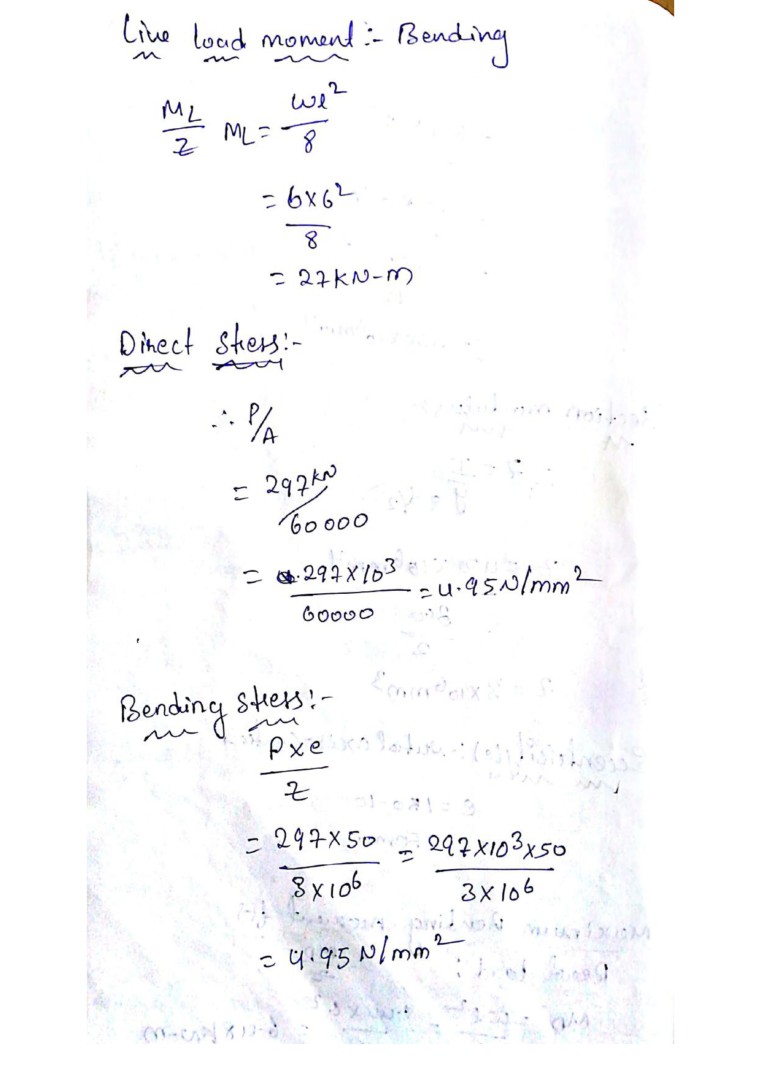 Live load moment :- Bending
M_L/Z M_L = wl²/8
= 6×6²/8
= 27 KN-m
Direct Stress:-
∴ P/A
= 297 KN/60000
= 297×10³/60000 = 4.95 N/mm²
Bending Stress:-
P×e/Z
= 297×50/3×10⁶ = 297×10³×50/3×10⁶
= 4.95 N/mm²